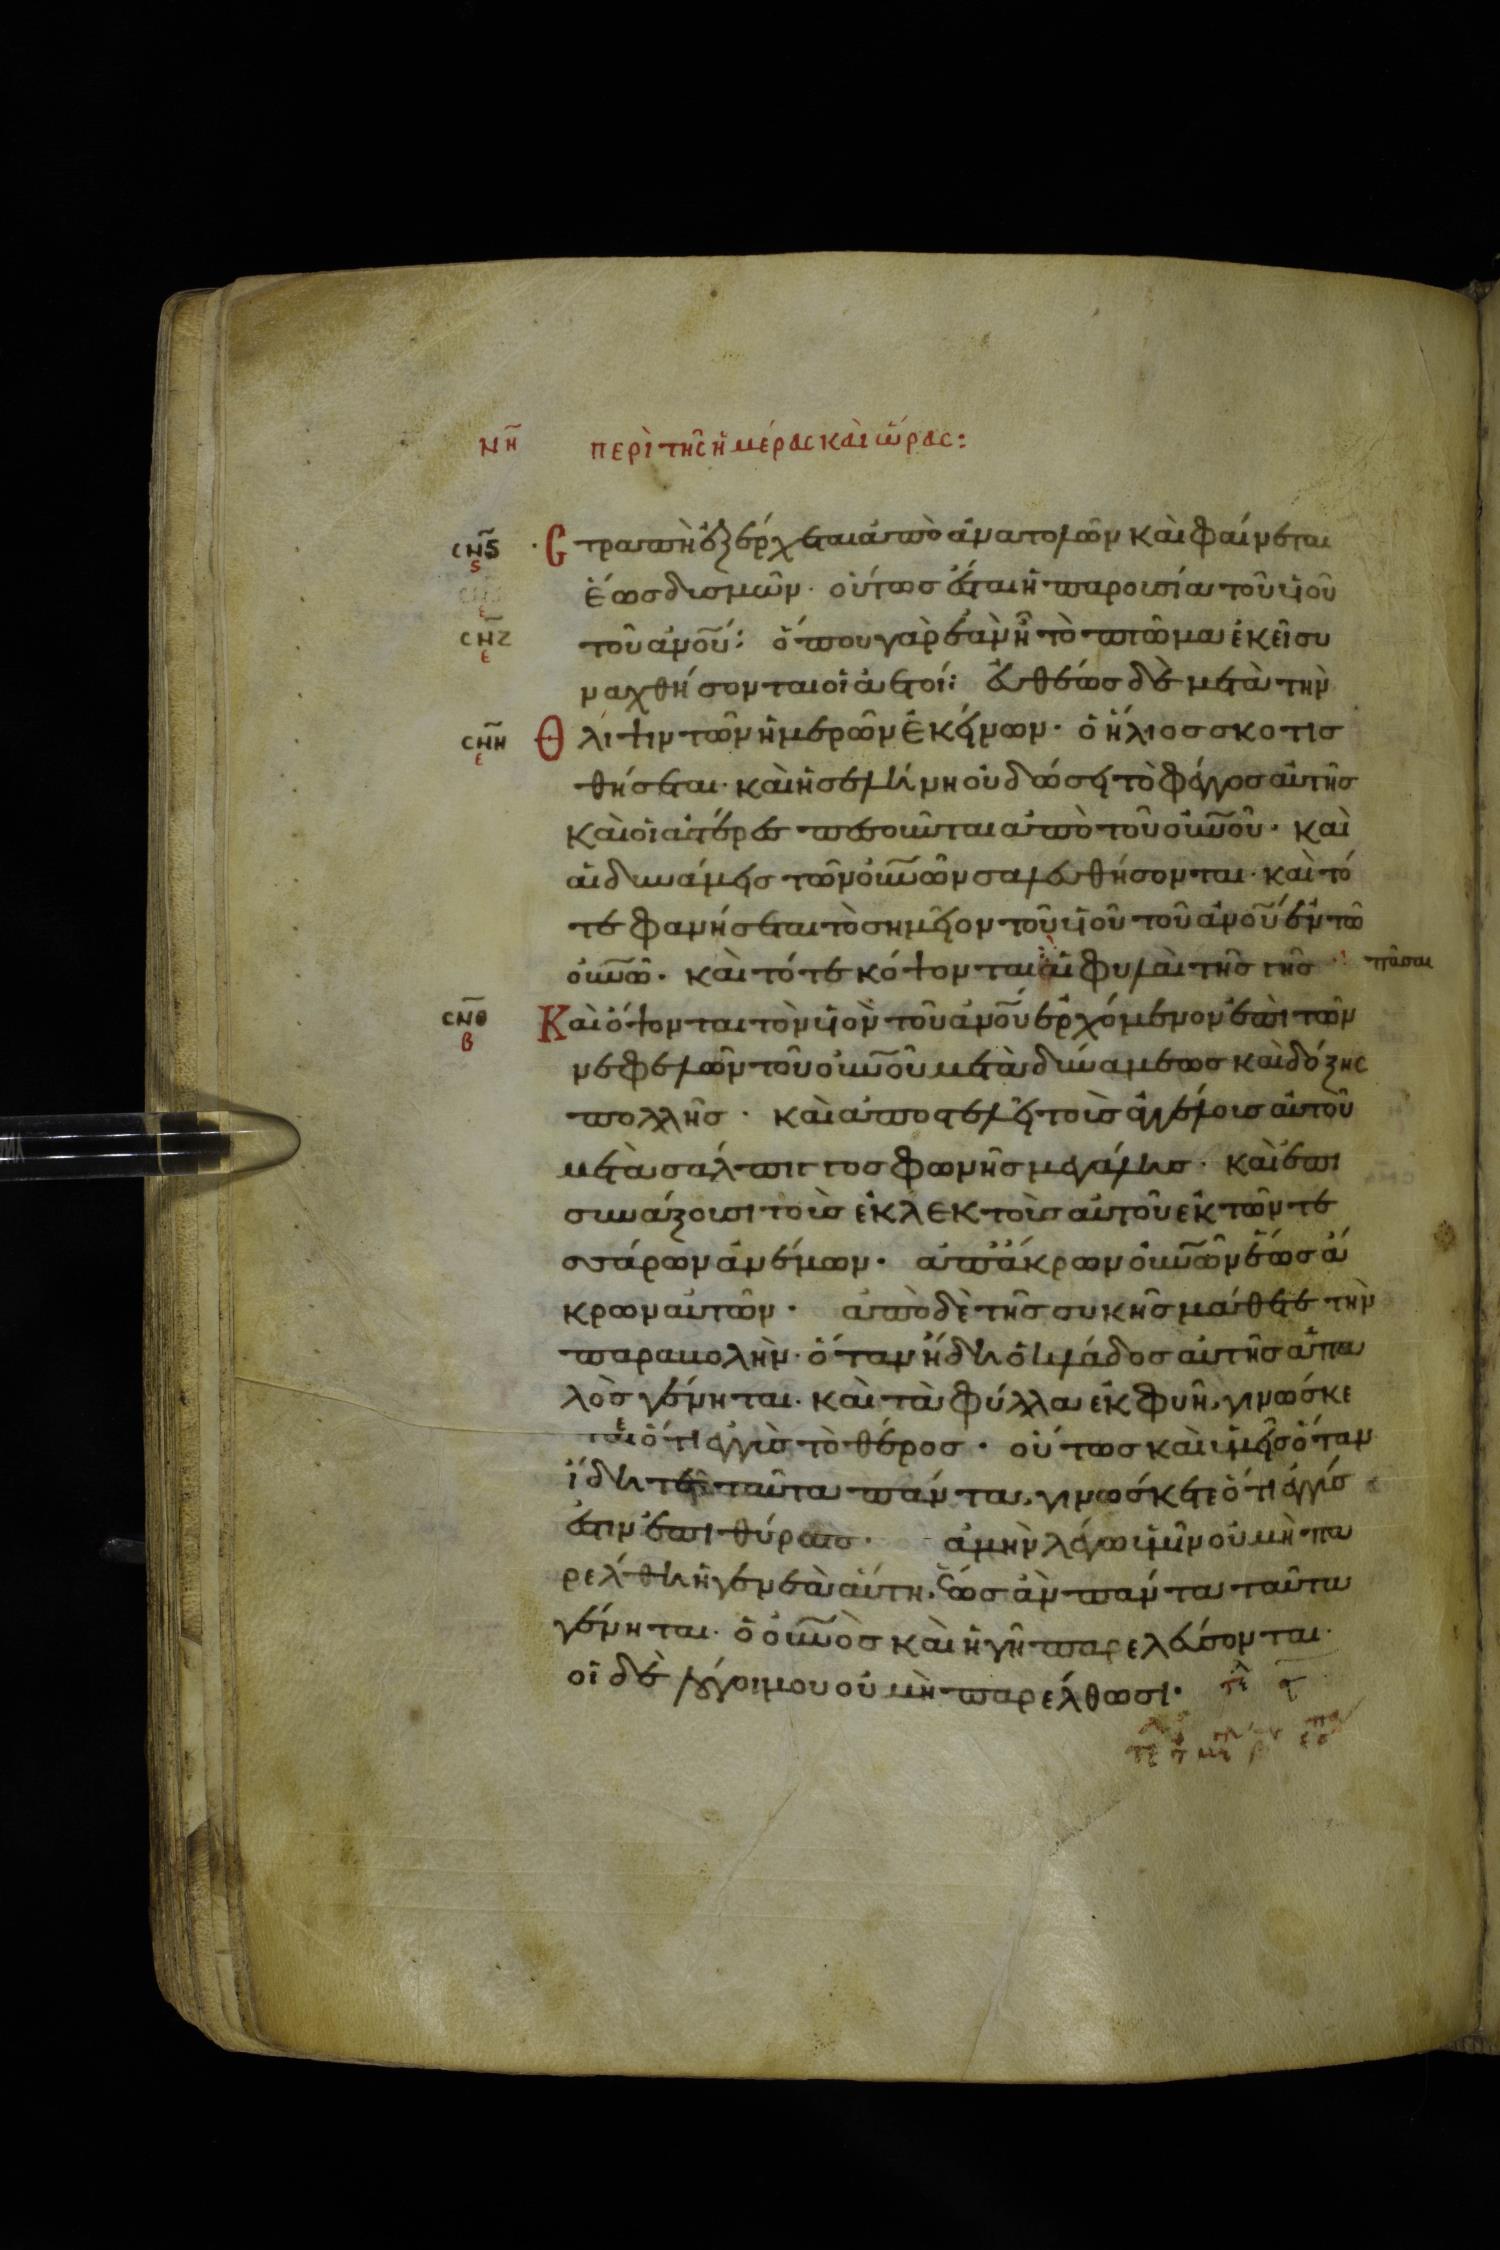 ΝΗ περὶ τῆς ἡμέρας καὶ ὥρας:
ϹΝϚ Ϛ Ϲτραπὴ ἐξέρχεται ἀπὸ ἀνατολῶν καὶ φαίνεται
ἕως δισμῶν· οὕτως ἔσται ἡ παρουσία τοῦ υἱοῦ
ϹΝΖ Ε τοῦ ἀν̅ο̅υ̅: ὅπου γὰρ ἐὰν ἦ τὸ πτῶμα ἐκεῖ συ
ναχθήσονται οἱ ἀετοί: εὐθέως δὲ μετὰ τὴν
ϹΝΗ Ε Θλίψιν τῶν ἡμερῶν ἐκείνων· ὁ ἥλιος σκοτισ
θήσεται· καὶ ἡ σελήνη οὐ δώσει τὸ φέγγος αὐτῆς
καὶ οἱ ἀστέρες πεσοῦνται ἀπὸ τοῦ οὐν̅ο̅ῦ· καὶ
αἱ δυνάμεις τῶν οὐν̅ῶν σαλευθήσονται· καὶ τό
τε φανήσεται τὸ σημεῖον τοῦ υἱοῦ τοῦ ἀν̅ο̅υ̅ ἐν τῶ
οὐν̅ῶ· καὶ τότε κόψονται αἱ φυλαὶ τῆς γῆς πᾶσαι
ϹΝΘ Β Καὶ ὄψονται τὸν υἱὸν τοῦ ἀν̅ο̅υ̅ ἐρχόμενον ἐπὶ τῶν
νεφελῶν τοῦ οὐν̅ο̅ῦ μετὰ δυνάμεως καὶ δόξης
πολλῆς· καὶ ἀποστελεῖ τοὺς ἀγγέλους αὐτοῦ
μετὰ σάλπιγγος φωνῆς μεγάλης· καὶ ἐπι
συνάξουσι τοὺς ἐκλεκτοὺς αὐτοῦ ἐκ τῶν τε
σσάρων ἀνέμων· ἀπ' ἄκρων οὐν̅ῶν ἕως ἄ
κρων αὐτῶν· ἀπὸ δὲ τῆς συκῆς μάθετε τὴν
παραβολὴν· ὅταν ἤδη ὁ κλάδος αὐτῆς ἁπα
λὸς γένηται· καὶ τὰ φύλλα ἐκφυῆ, γινώσκε
ται ὅτι ἐγγὺς τὸ θέρος· οὕτως καὶ ὑμεῖς ὅταν
ἴδητε ταῦτα πάντα, γινώσκετε ὅτι ἐγγύς
ἐστιν ἐπὶ θύραις· ἀμὴν λέγω ὑμῖν οὐ μὴ πα
ρέλθη ἡ γενεὰ αὕτη, ἕως ἂν πάντα ταῦτα
γένηται· ὁ οὐν̅ὸς καὶ ἡ γῆ παρελεύσονται·
οἱ δὲ λόγοι μου οὐ μὴ παρέλθωσι·